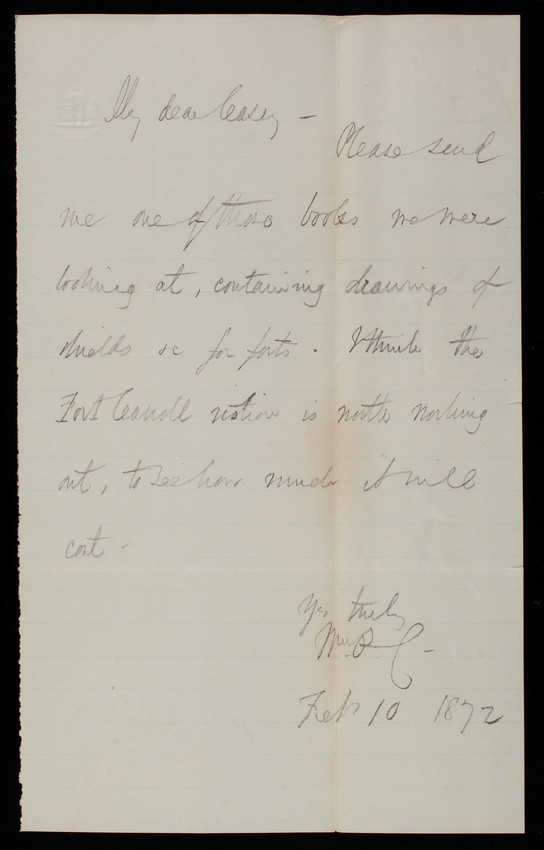 My dear Casey –
Please send
me one of those books we were
looking at, containing drawings of
shields &c for forts. I think the
Fort Carroll notion is worth working
out, to see how much it will
cost –
Yrs truly
Wm P. C–
Feb 10 1872